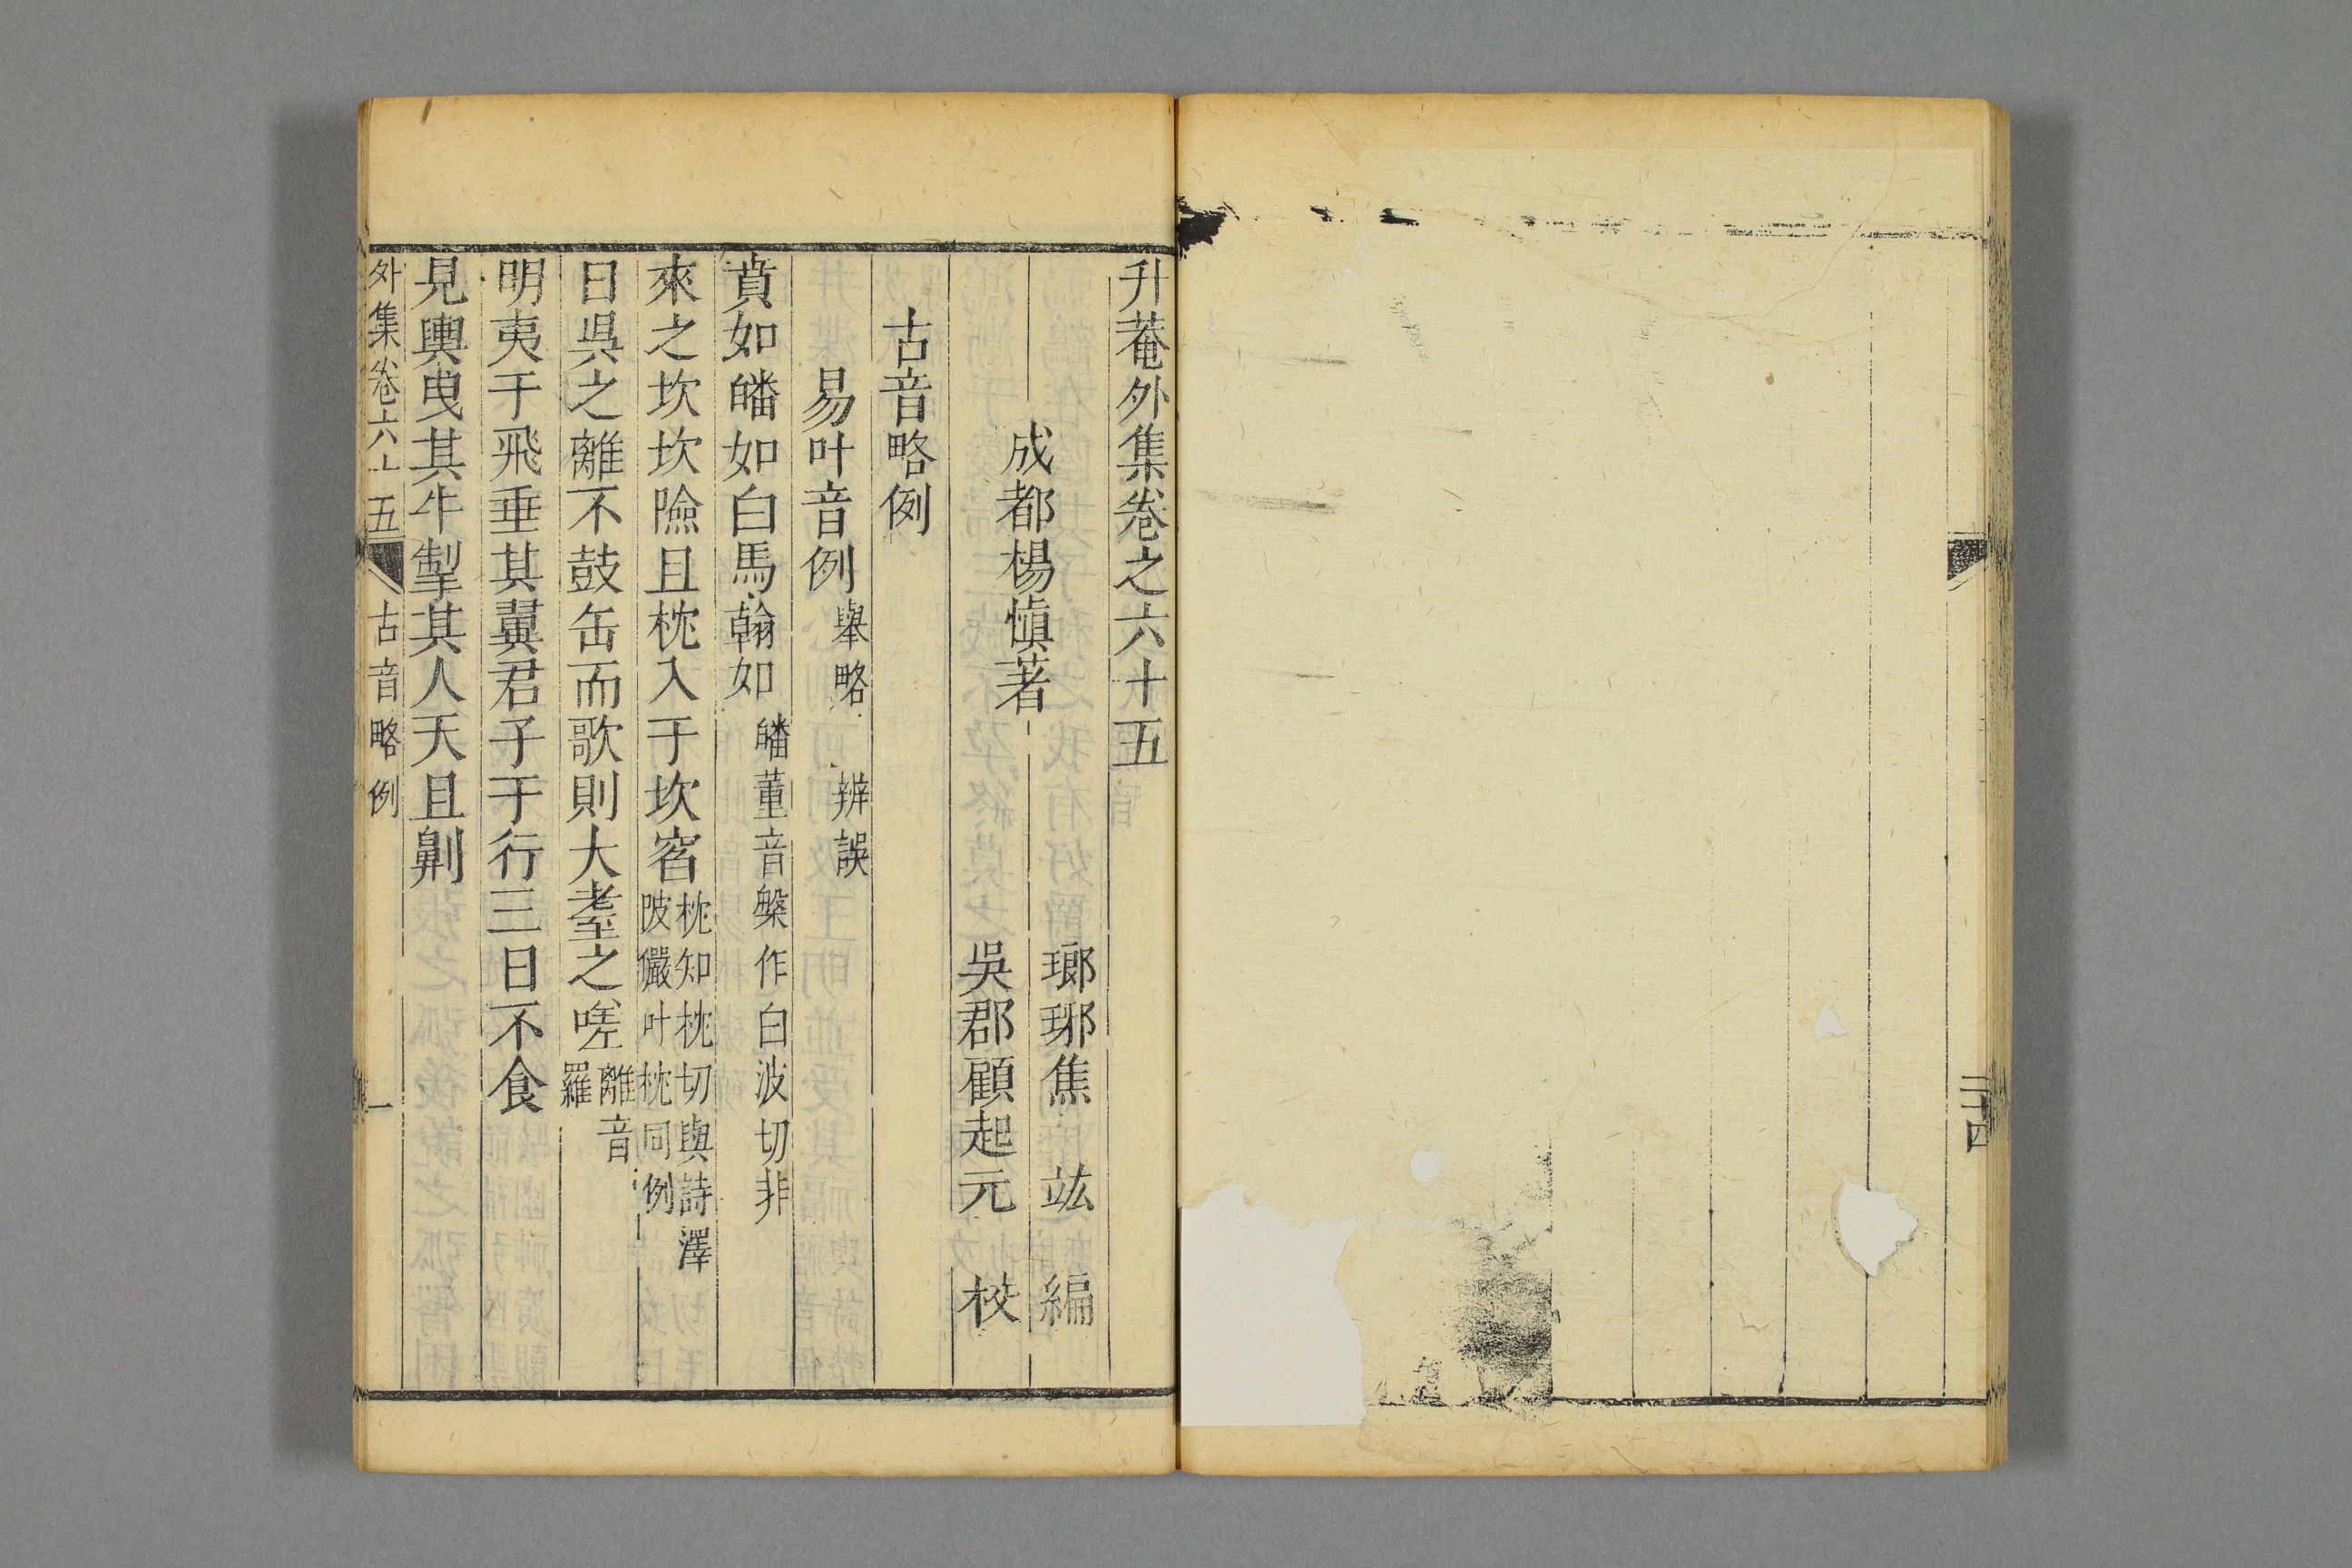 二十四
升菴外集卷之六十五
瑯琊焦竑編
成都楊愼著
吳郡顧起元校
古音略例
易叶音例 舉略 辨誤
賁如皤如白馬翰如 皤董音槃作白波切非
來之坎坎險且枕入于坎窞 枕知枕切與詩澤陂儼叶枕同例
日昃之離不鼓缶而歌則大耋之嗟 離音羅
明夷于飛垂其翼君子于行三日不食
見輿曳其牛掣其人天且劓
外集卷六十五 古音略例 一